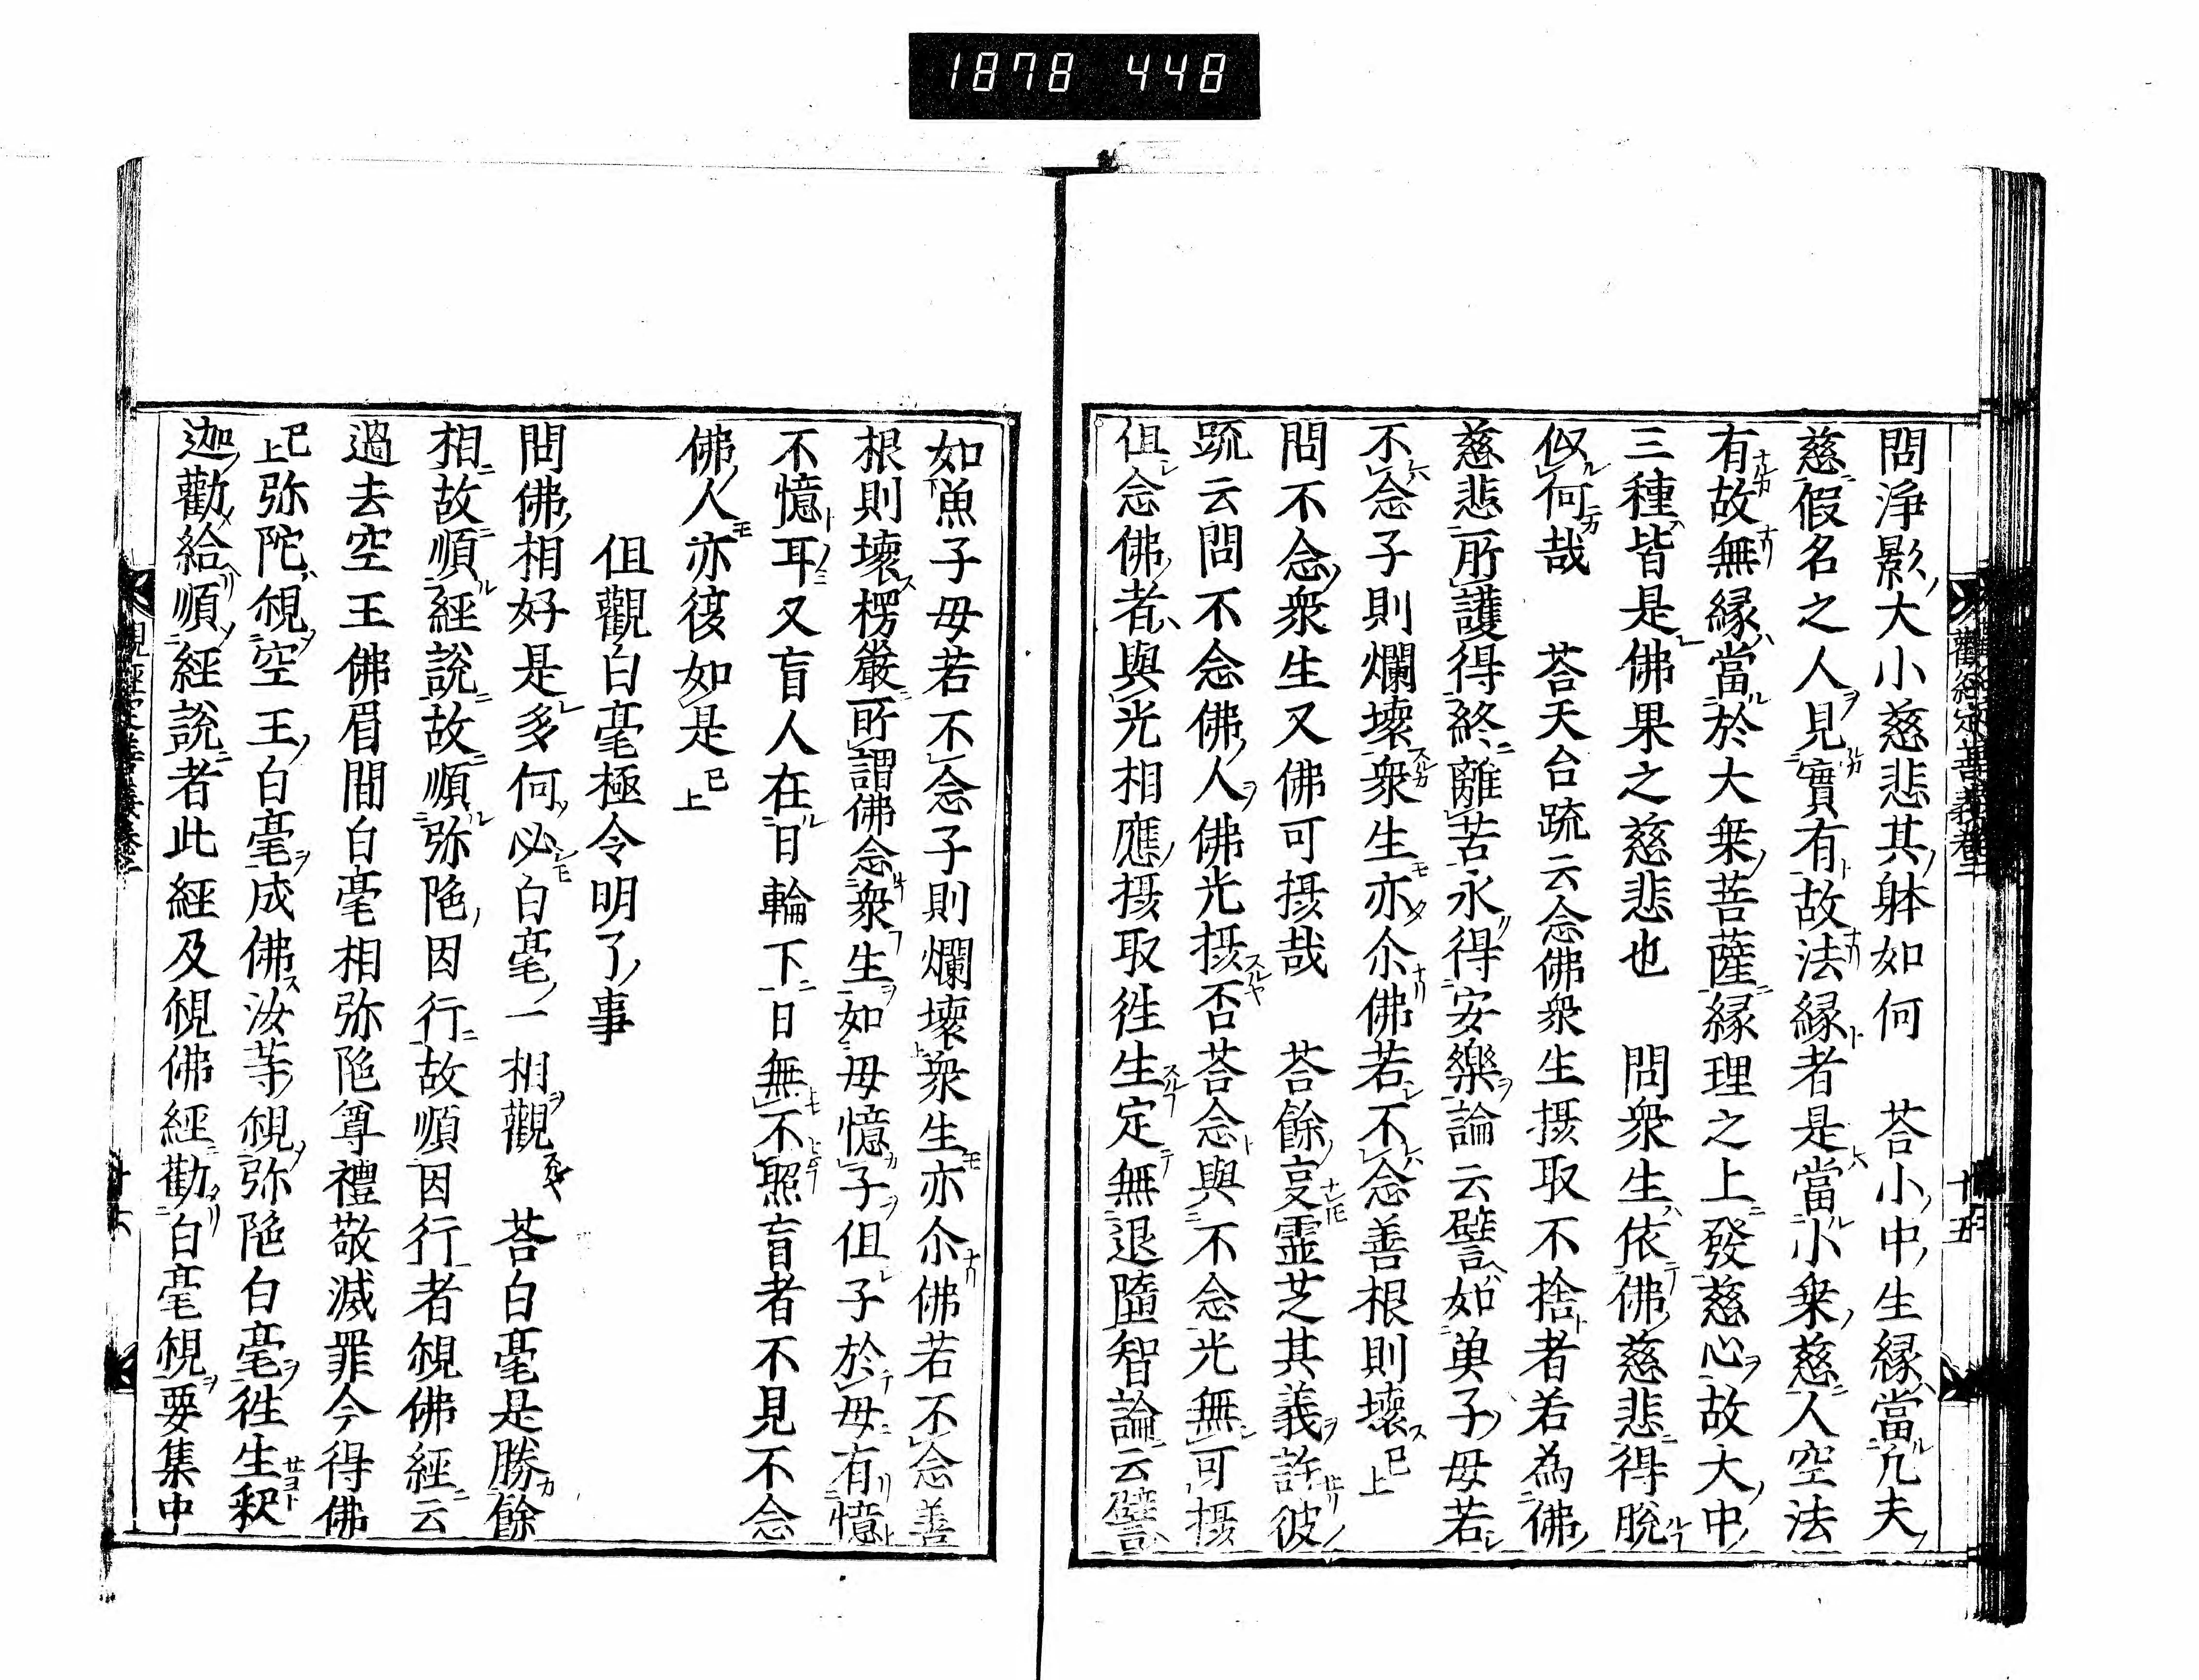 1878 448
問淨影大小慈悲其躰如何 荅小中生緣當凢夫
慈假名之人見實有故法緣者是當小乗慈人空法
有故無緣當於大乗菩薩緣理之上發慈心故大中
三種皆是佛果之慈悲也 問衆生依佛慈悲得脫
似何哉 荅天台疏云念佛衆生摂取不捨者若為佛
慈悲所護得終離苦永得安樂論云譬如魚子母若
不念子則爛壞衆生亦尒佛若不念善根則壞 已上
問不念衆生又佛可摂哉 荅餘㕝霊芝其義許彼
䟽云問不念佛人佛光摂否荅念與不念光無可摂
但念佛者與光相應摂取徃生定無退墮智論云譬
如魚子母若不念子則爛壞衆生亦尒佛若不念善
根則壞楞嚴所謂佛念衆生如母憶子但子於母有憶
不憶耳又盲人在日輪下日無不照盲者不見不念
佛人亦復如是 已上
但觀白毫極令明了事
問佛相好是多何必白毫一相觀 荅白毫是勝餘
相故順經說故順弥陁因行故順因行者覌佛經云
過去空王佛眉間白毫相弥陁尊禮敬滅罪今得佛
已上弥陀覌空王白毫成佛汝等覌弥陁白毫徃生釈
迦勸給順經說者此經及覌佛經勸白毫覌要集中
觀經定善義卷三
十五